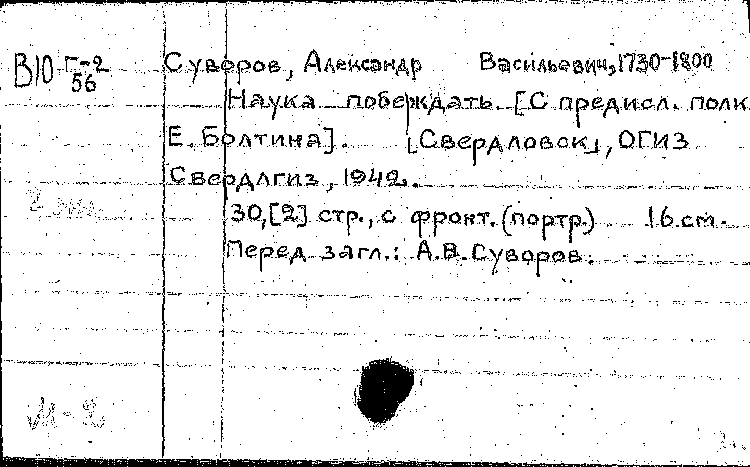 В10 Г-2 Суворов, Александр Васильевич, 1730-1800
56
Наука побеждать. [С предисл. полк.
Е. Болтина]. [Свердловск], ОГИЗ
Свердлгиз, 1942.
30,[2] стр., с фронт. (портр.) 16 cm.
Перед загл.: А.В. Суворов.
М-2